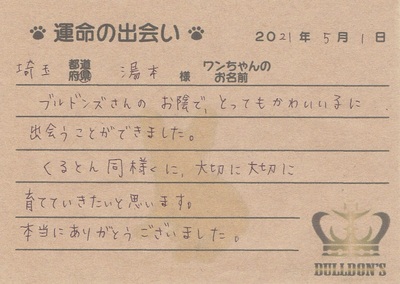 運命の出会い 2021年5月1日
埼玉 都道府県 湯本 様 ワンちゃんのお名前
ブルドンズさんの お陰で、とってもかわいい子に
出会うことができました。
くるとん同様に、大切に大切に
育てていきたいと思います。
本当にありがとうございました。
BULLDON'S